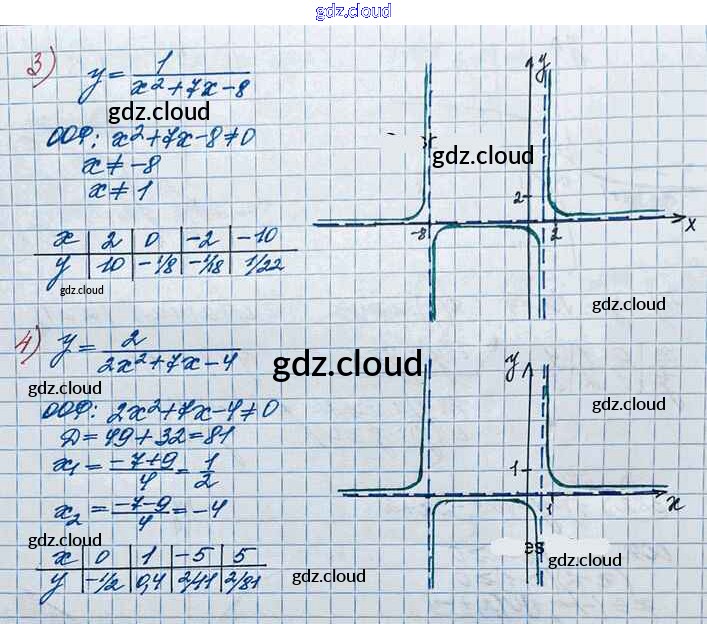 gdz.cloud
3) y = 1/(x²+7x-8)
gdz.cloud
ООФ: x²+7x-8≠0
x≠-8
x≠1
x | 2 | 0 | -2 | -10
y | 10 | -1/8 | -1/18 | 1/22
gdz.cloud
y
gdz.cloud
2
-8
2
x
gdz.cloud
4) y = 2/(2x²+7x-4)
gdz.cloud
gdz.cloud
ООФ: 2x²+7x-4≠0
D=49+32=81
x₁ = (-7+9)/4 = 1/2
x₂ = (-7-9)/4 = -4
gdz.cloud
x | 0 | 1 | -5 | 5
y | -1/2 | 0,4 | 2/11 | 2/81
gdz.cloud
y
gdz.cloud
1
1
x
es
gdz.cloud